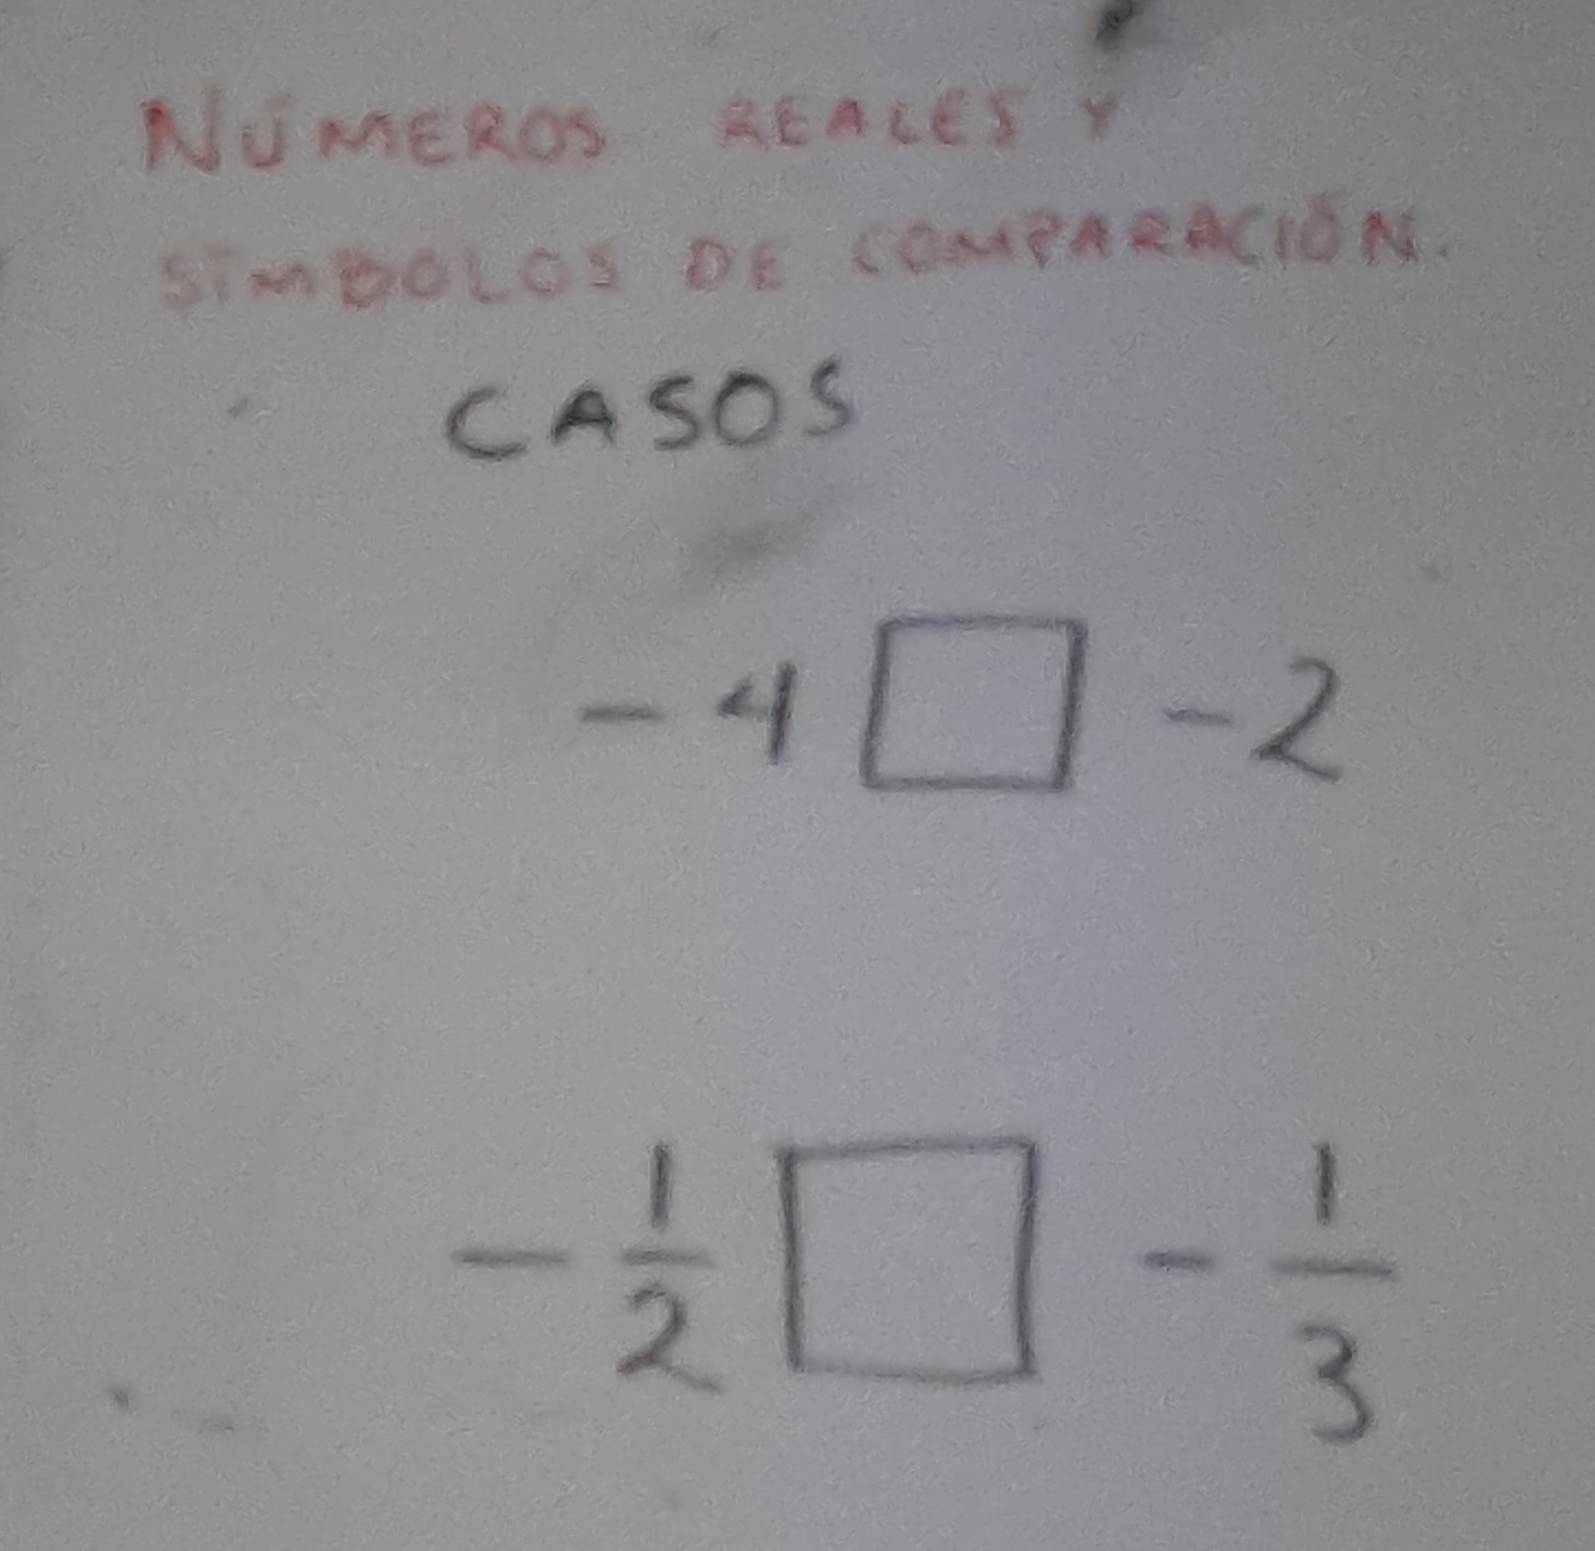 NÚMEROS REALES Y
SÍMBOLOS DE COMPARACIÓN.
CASOS
- 4 □ - 2
- 1/2 □ - 1/3